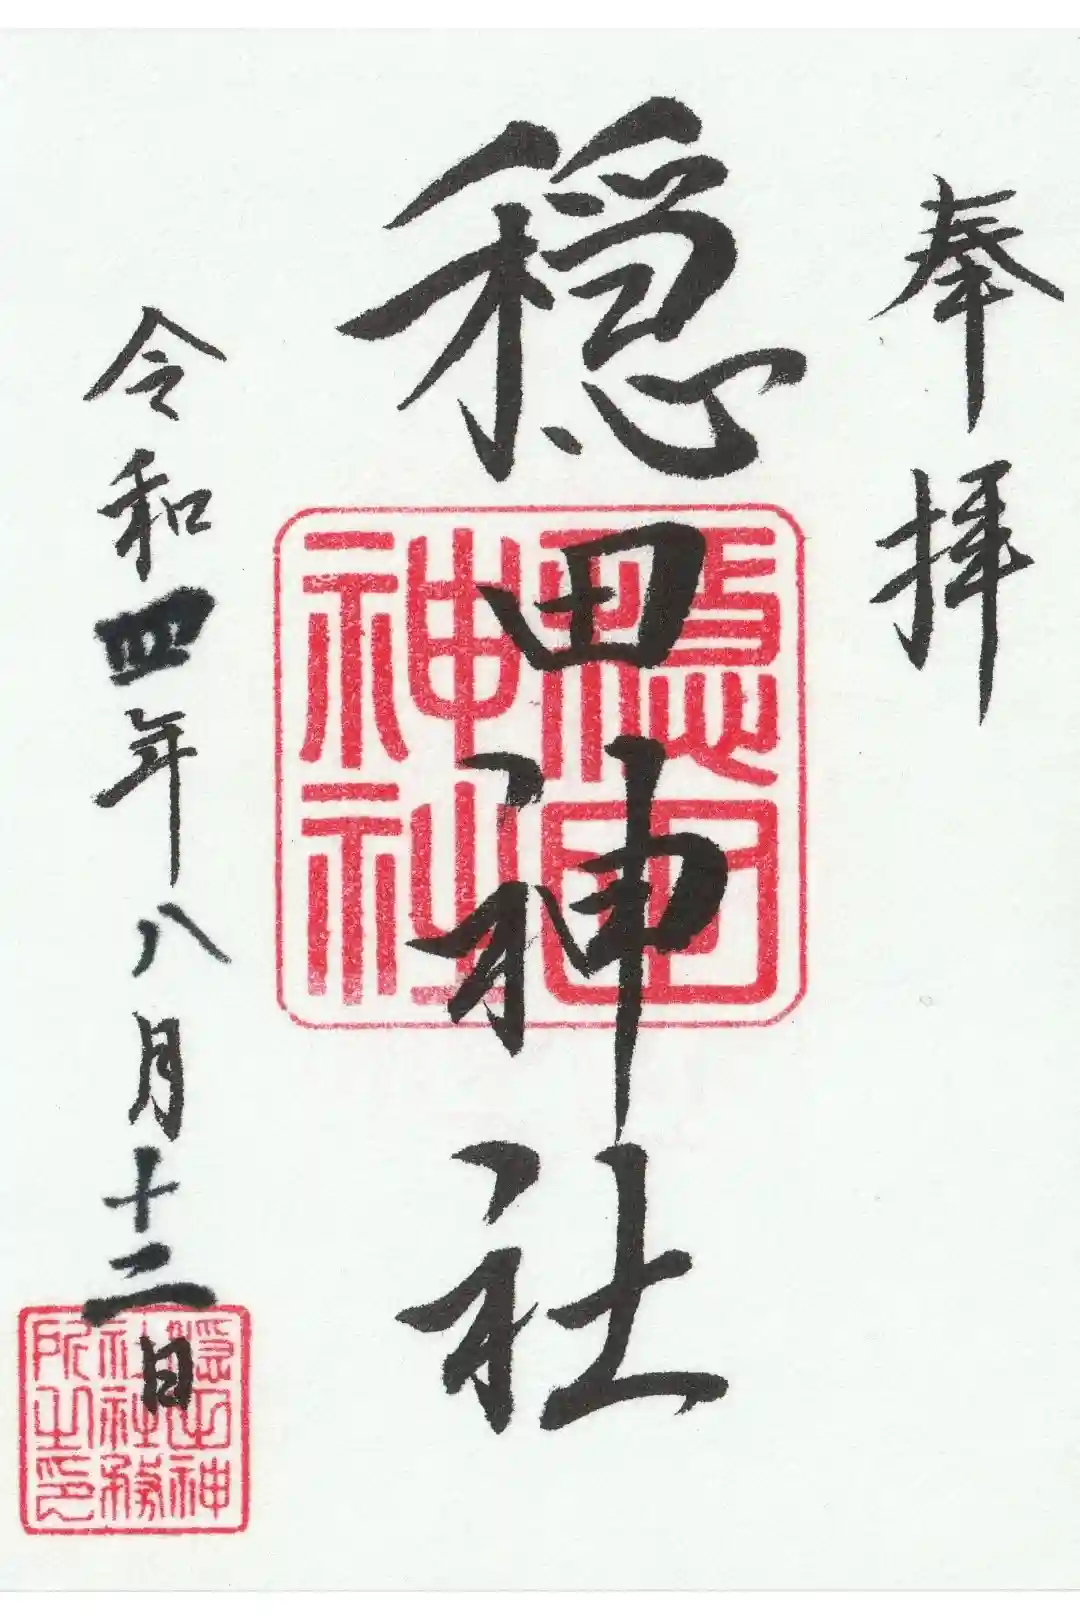 奉拝
穏田神社
穏田神社
令和四年八月十二日
穏田神社社務所之印